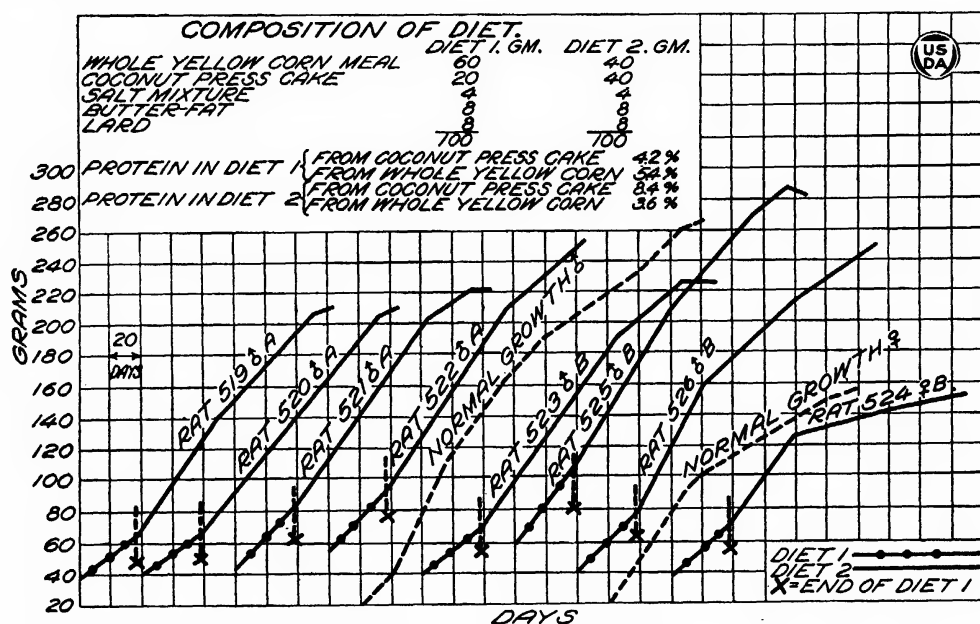 COMPOSITION OF DIET.
DIET 1. GM. DIET 2. GM.
WHOLE YELLOW CORN MEAL 60 40
COCONUT PRESS CAKE 20 40
SALT MIXTURE 4 4
BUTTER-FAT 8 8
LARD 8 8
100 100
PROTEIN IN DIET 1 { FROM COCONUT PRESS CAKE 4.2 %
FROM WHOLE YELLOW CORN 5.4 %
PROTEIN IN DIET 2 { FROM COCONUT PRESS CAKE 8.4 %
FROM WHOLE YELLOW CORN 3.6 %
US
DA
300
280
260
240
220
200
180
160
140
120
100
80
60
40
20
GRAMS
20
DAYS
RAT 519 ♂ A
RAT 520 ♂ A
RAT 521 ♂ A
RAT 522 ♂ A
NORMAL GROWTH, ♂
RAT 523 ♂ B
RAT 525 ♂ B
RAT 526 ♂ B
NORMAL GROWTH. ♀
RAT 524 ♀ B
DIET 1
DIET 2
X = END OF DIET 1
DAYS